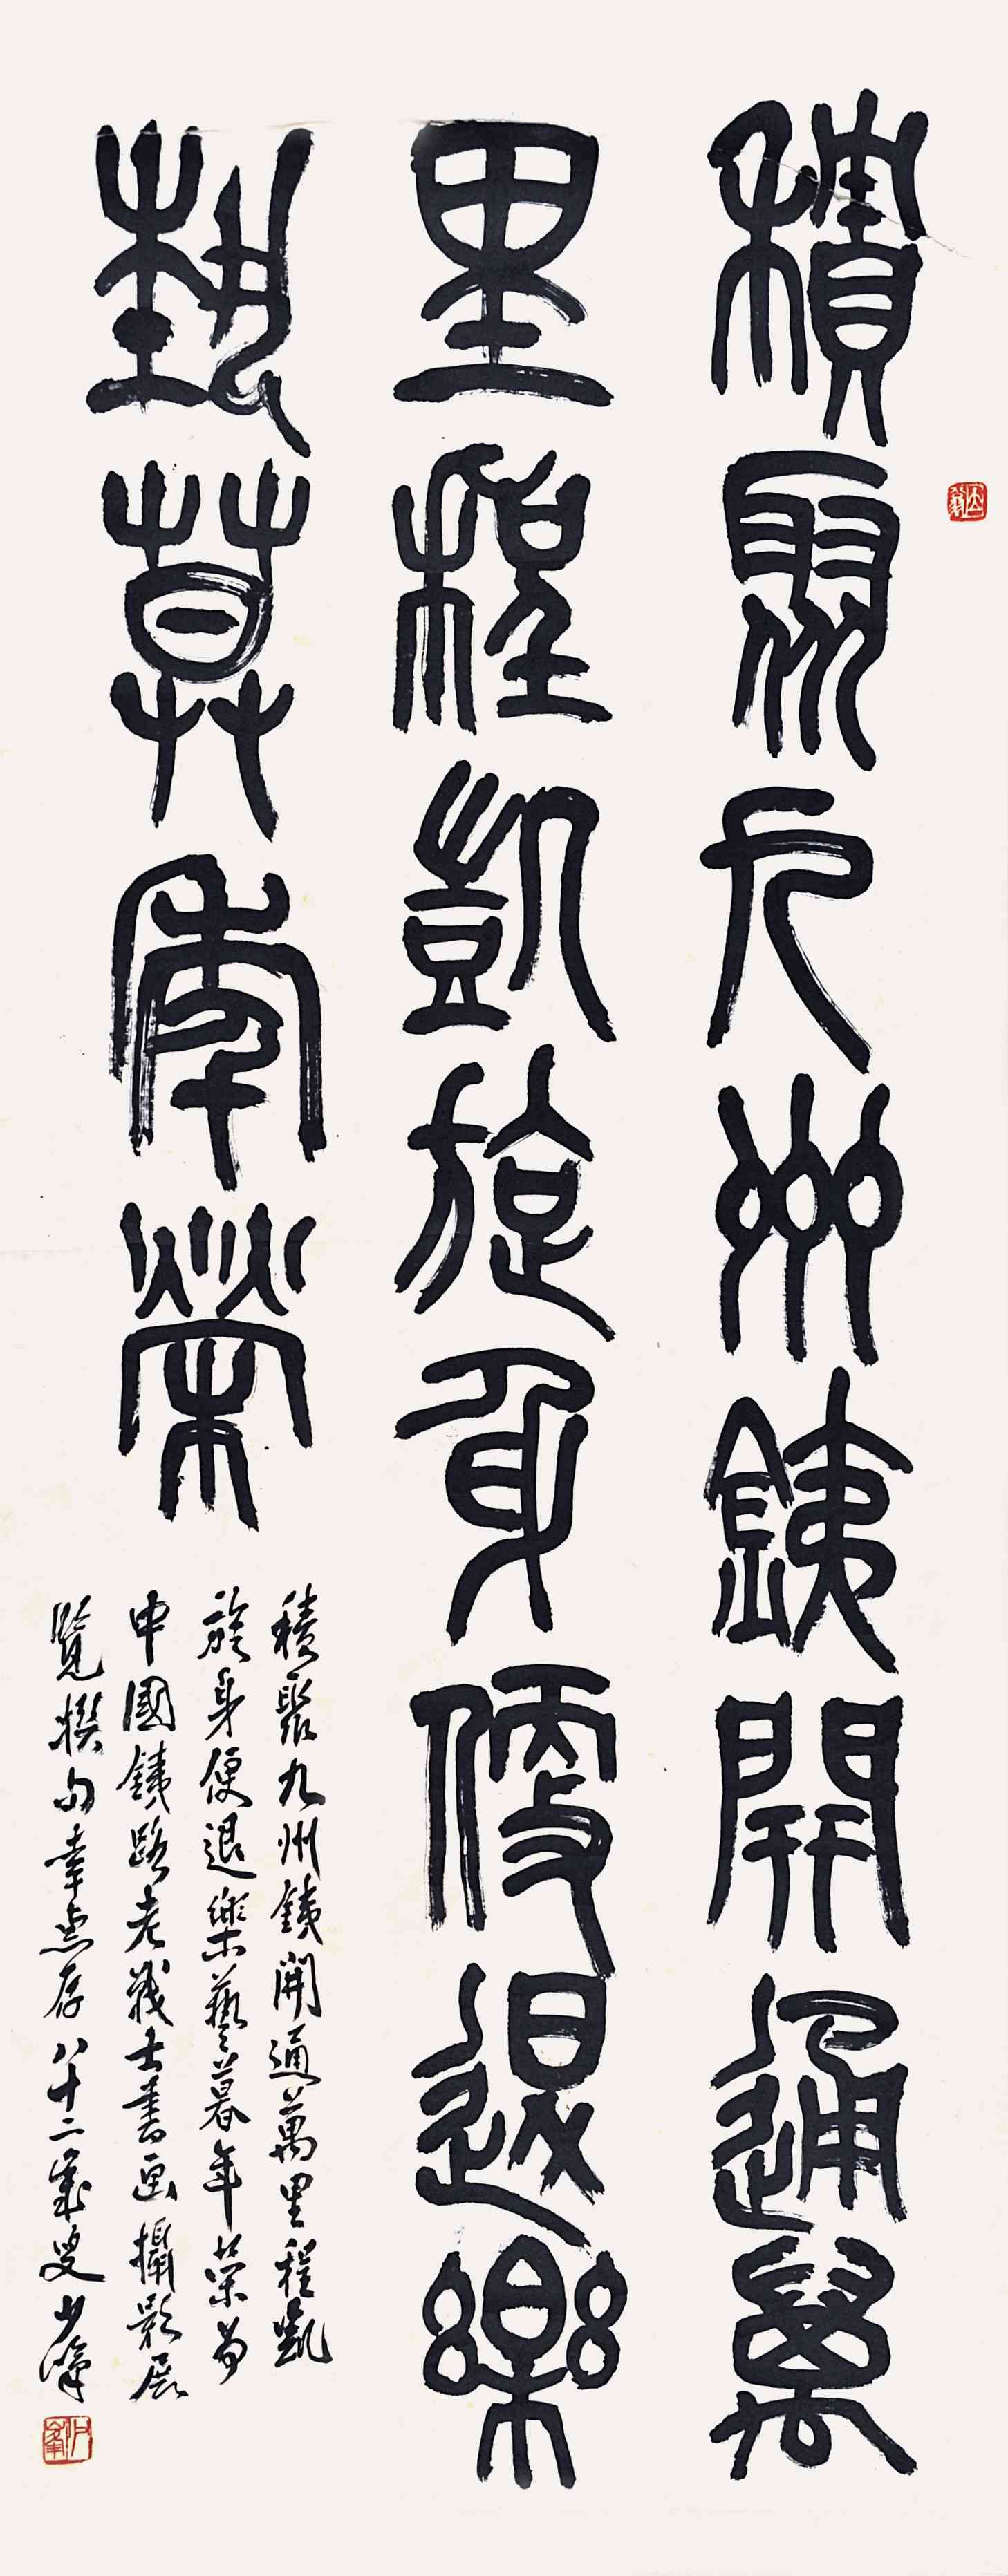 積聚九州鐵開通萬
里程凱旋身便退樂
藝莫年榮
積聚九州鐵開通萬里程凱
旋身便退樂藝暮年榮為
中國鐵路老戰士書画攝影展
覽撰句幸点存八十二歲叟少峰